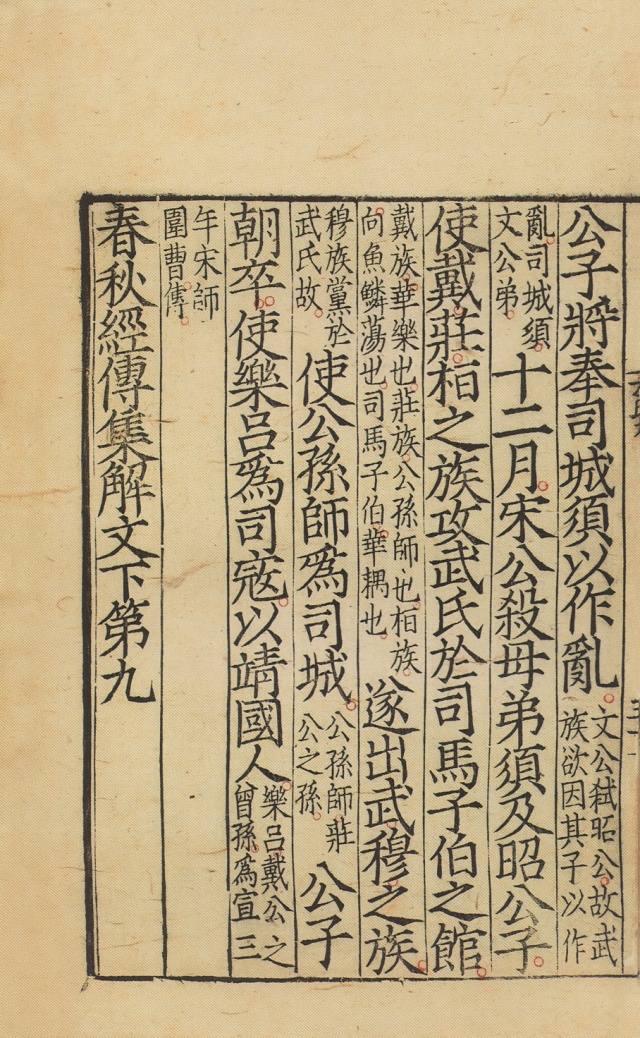 公子將奉司城須以作亂文公弒昭公故武族欲因其子以作
亂司城須文公弟十二月宋公殺母弟須及昭公子
使戴莊桓之族攻武氏於司馬子伯之館
戴族華樂也莊族公孫師也桓族向魚鱗蕩也司馬子伯華耦也遂出武穆之族
穆族黨於武氏故使公孫師爲司城公孫師莊公之孫公子
朝卒使樂呂爲司寇以靖國人樂呂戴公之曾孫爲宣三
午宋師圍曹傳
春秋經傳集解文下第九